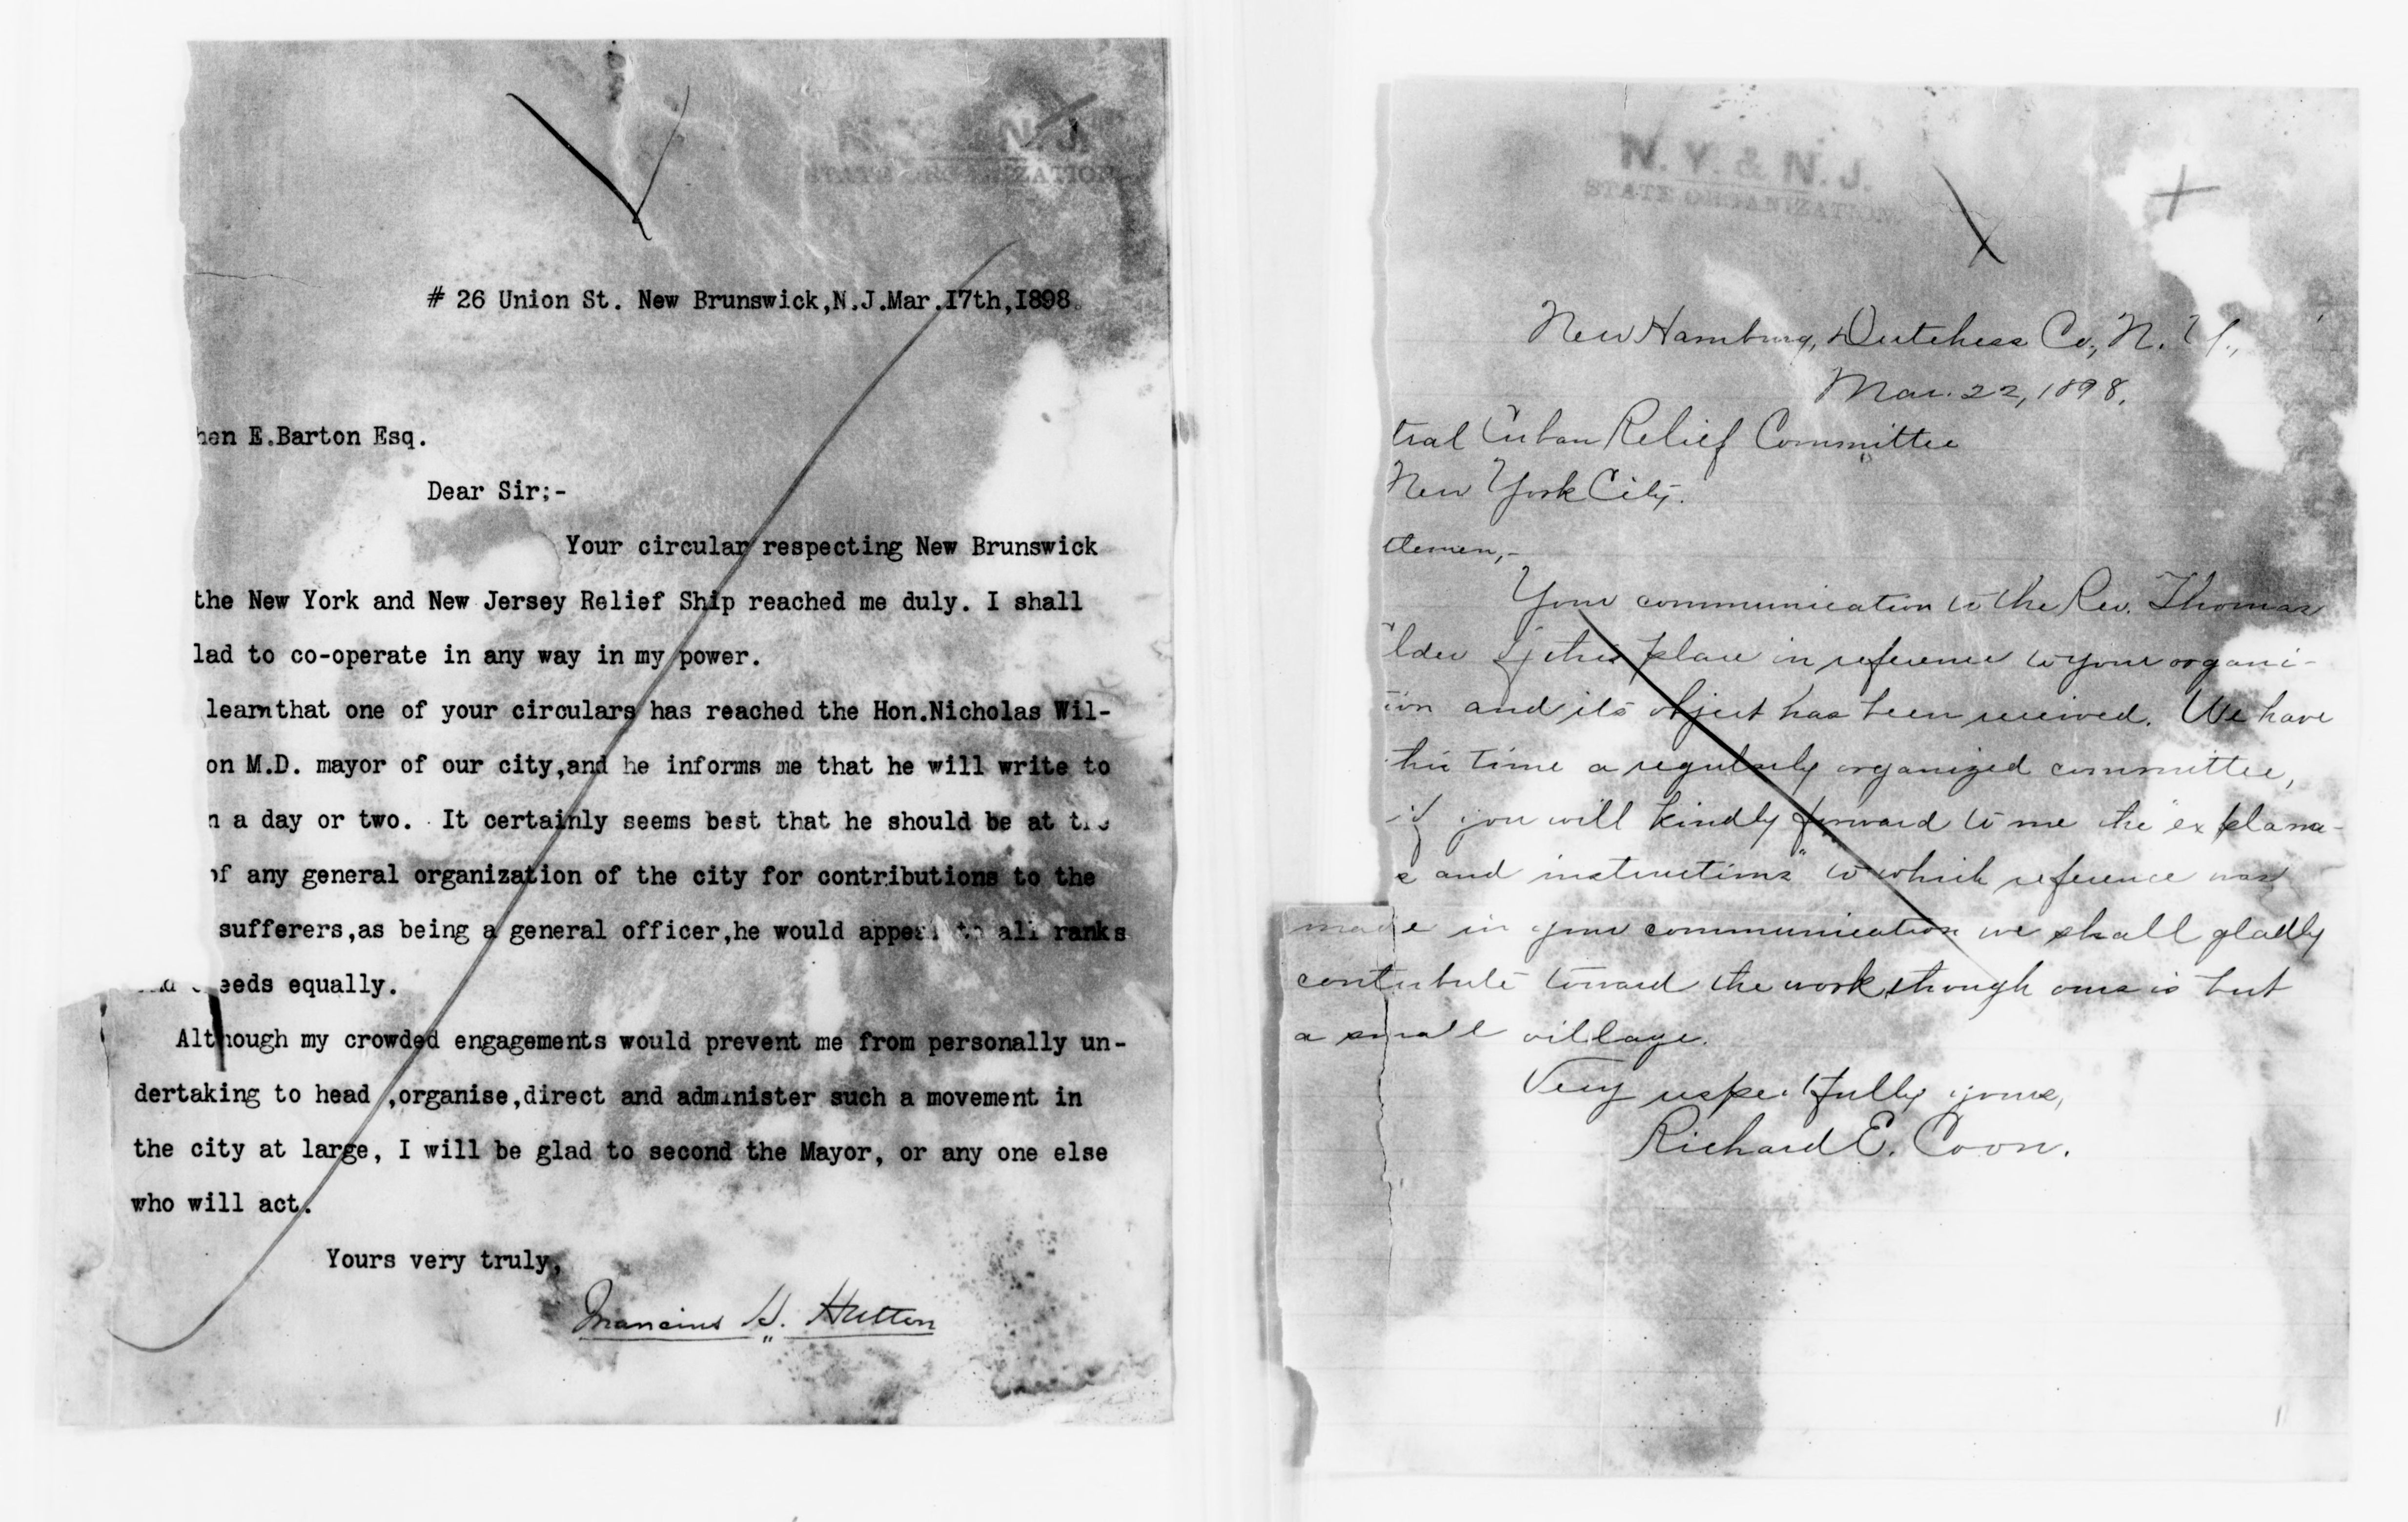 N. J.
STATE ORGANIZATION
# 26 Union St. New Brunswick,N.J.Mar.I7th,I898.
hen E.Barton Esq.
Dear Sir;-
Your circular respecting New Brunswick
the New York and New Jersey Relief Ship reached me duly. I shall
lad to co-operate in any way in my power.
learnthat one of your circulars has reached the Hon.Nicholas Wil-
on M.D. mayor of our city,and he informs me that he will write to
n a day or two. It certainly seems best that he should be at the
of any general organization of the city for contributions to the
sufferers,as being a general officer,he would appeal to all ranks
eeds equally.
Although my crowded engagements would prevent me from personally un-
dertaking to head ,organise,direct and administer such a movement in
the city at large, I will be glad to second the Mayor, or any one else
who will act.
Yours very truly,
Mancius H. Hutton
N. Y. & N. J.
STATE ORGANIZATION
New Hamburg, Dutchess Co., N. Y.,
Mar. 22, 1898.
tral Cuban Relief Committee
New York City.
tlemen,-
Your communication to the Rev. Thomas
lder of this place in reference to your organi-
ion and its object has been received. We have
this time a regularly organized committee,
if you will kindly forward to me the "explana-
s and instructions" to which reference was
made in your communication we shall gladly
contribute toward the work, though ours is but
a small village.
Very respectfully yours,
Richard E. Coon.